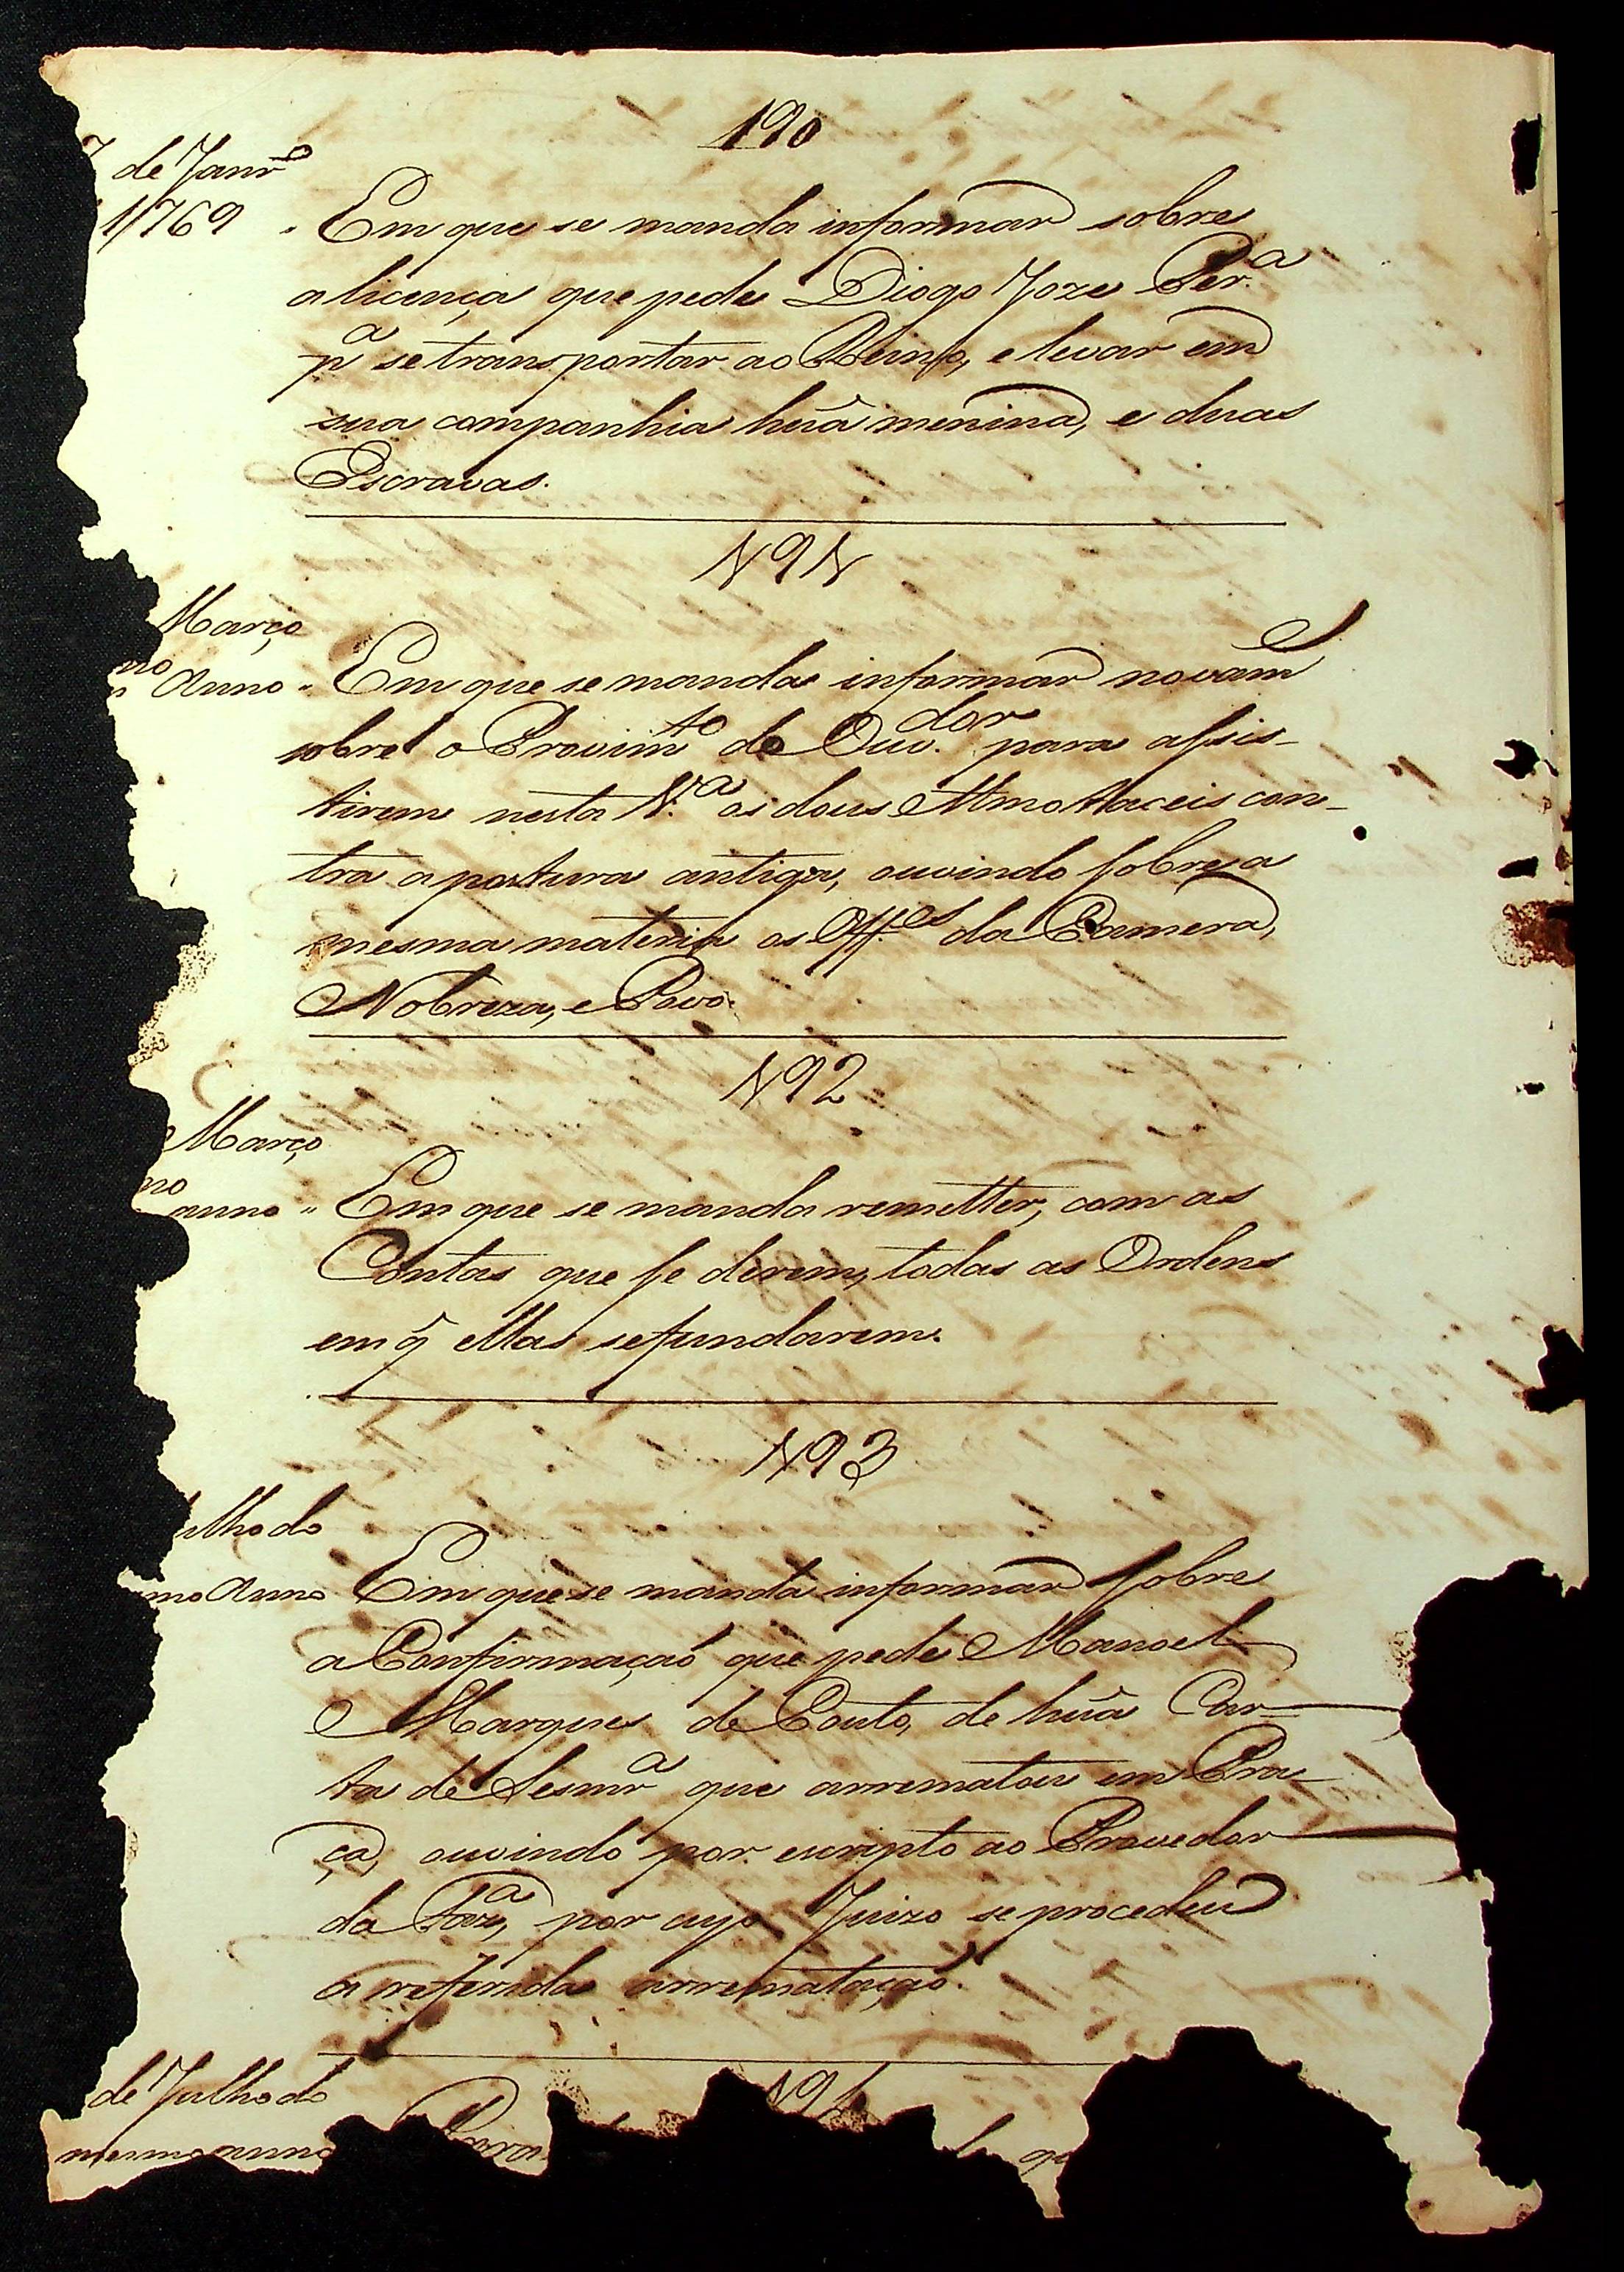 190
de Janr.o
1769 " Em que se manda informar sobre
a licença que pede Diogo Joze Per.a
p.a se transportar ao Reino, e levar em
sua companhia hũa menina, e duas
Escravas.
191
Março
no Anno " Em que se manda informar novam.e
sobre o Provim.to do Ouv.dor para assis-
tirem nesta V.a os dous Almotaceis con-
tra a postura antiga, ouvindo sobre a
mesma materia os Off.es da Camera,
Nobreza, e Povo.
192
Março
no
anno " Em que se manda remetter, com as
Contas que se derem, todas as Ordens
em q̃ ellas se fundarem.
193
ulho do
mo Anno Em que se manda informar sobre
a Confirmaçaõ que pede Manoel
Marques de Couto, de hũa Car-
ta de Sesmr.a que arrematou em Pra-
ça, ouvindo por escripto ao Provedor
da Faz.a, por cujo Juizo se procedeu
a referida arremataçaõ.
194
de Julho do
mesmo anno Para